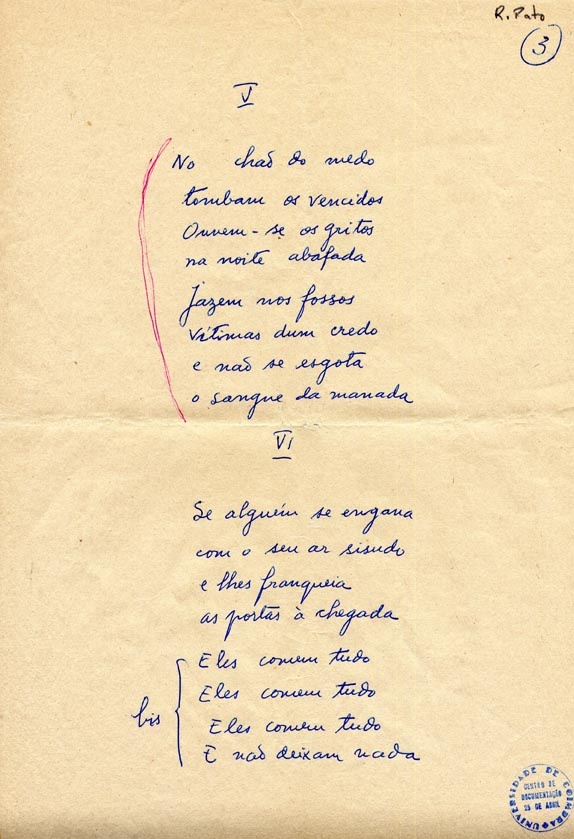 R. Pato
3
V
No chão do medo
tombam os vencidos
Ouvem-se os gritos
na noite abafada
Jazem nos fossos
Vítimas dum credo
e não se esgota
o sangue da manada
VI
Se alguém se engana
com o seu ar sisudo
e lhes franqueia
as portas à chegada
Eles comem tudo
Eles comem tudo
bis
Eles comem tudo
E não deixam nada
UNIVERSIDADE DE COIMBRA
CENTRO DE
DOCUMENTAÇÃO
25 DE ABRIL